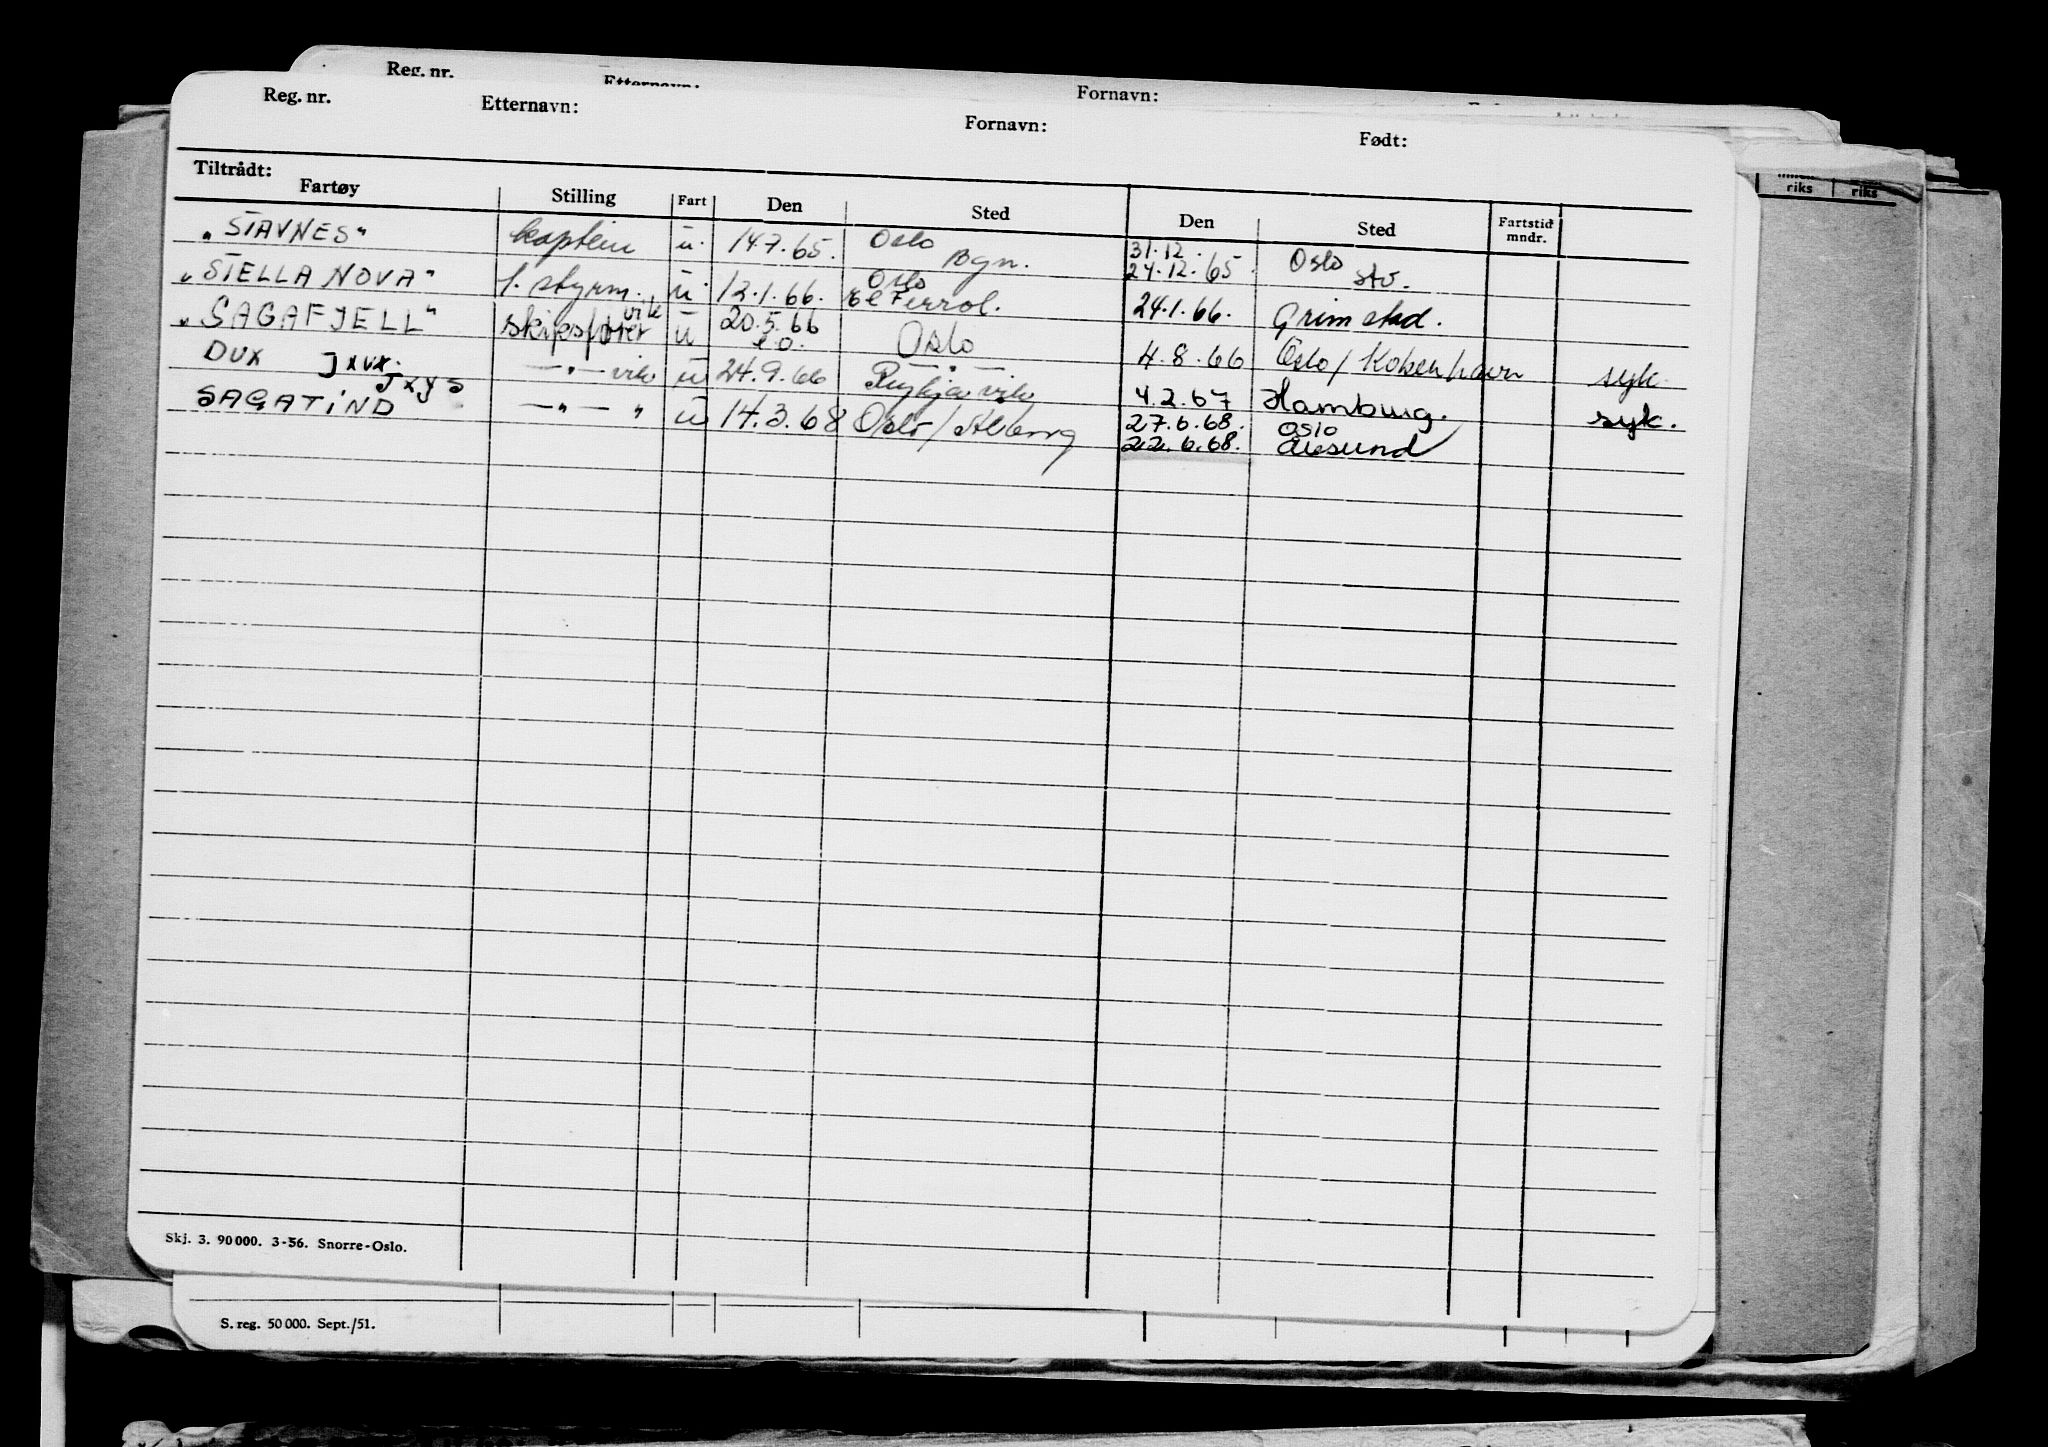 Reg. nr. Fornavn:
Reg. nr. Etternavn: Fornavn: Født:
riks riks
Tiltrådt:
Fartøy Stilling Fart Den Sted Den Sted Fartstid mndr.
"STAVNES" kaptein u. 14.7.65. Oslo Bgn. 31.12. 24.12.65. Oslo Stv.
"STELLA NOVA" 1. styrm. u 12.1.66. Oslo El Ferrol. 24.1.66. Grimstad.
"SAGAFJELL" skipsfører vik u 20.5.66 Oslo 4.8.66 Oslo/Kobenhavn syk.
DUX JXVX. JXYS —"— vik u 24.9.66 Reykjavik 4.2.67 Hamburg. syk.
SAGATIND —"— " u 14.3.68 Oslo/Ålborg 27.6.68. 22.6.68. Oslo Ålesund
Skj. 3. 90000. 3-56. Snorre-Oslo.
S. reg. 50000. Sept./51.